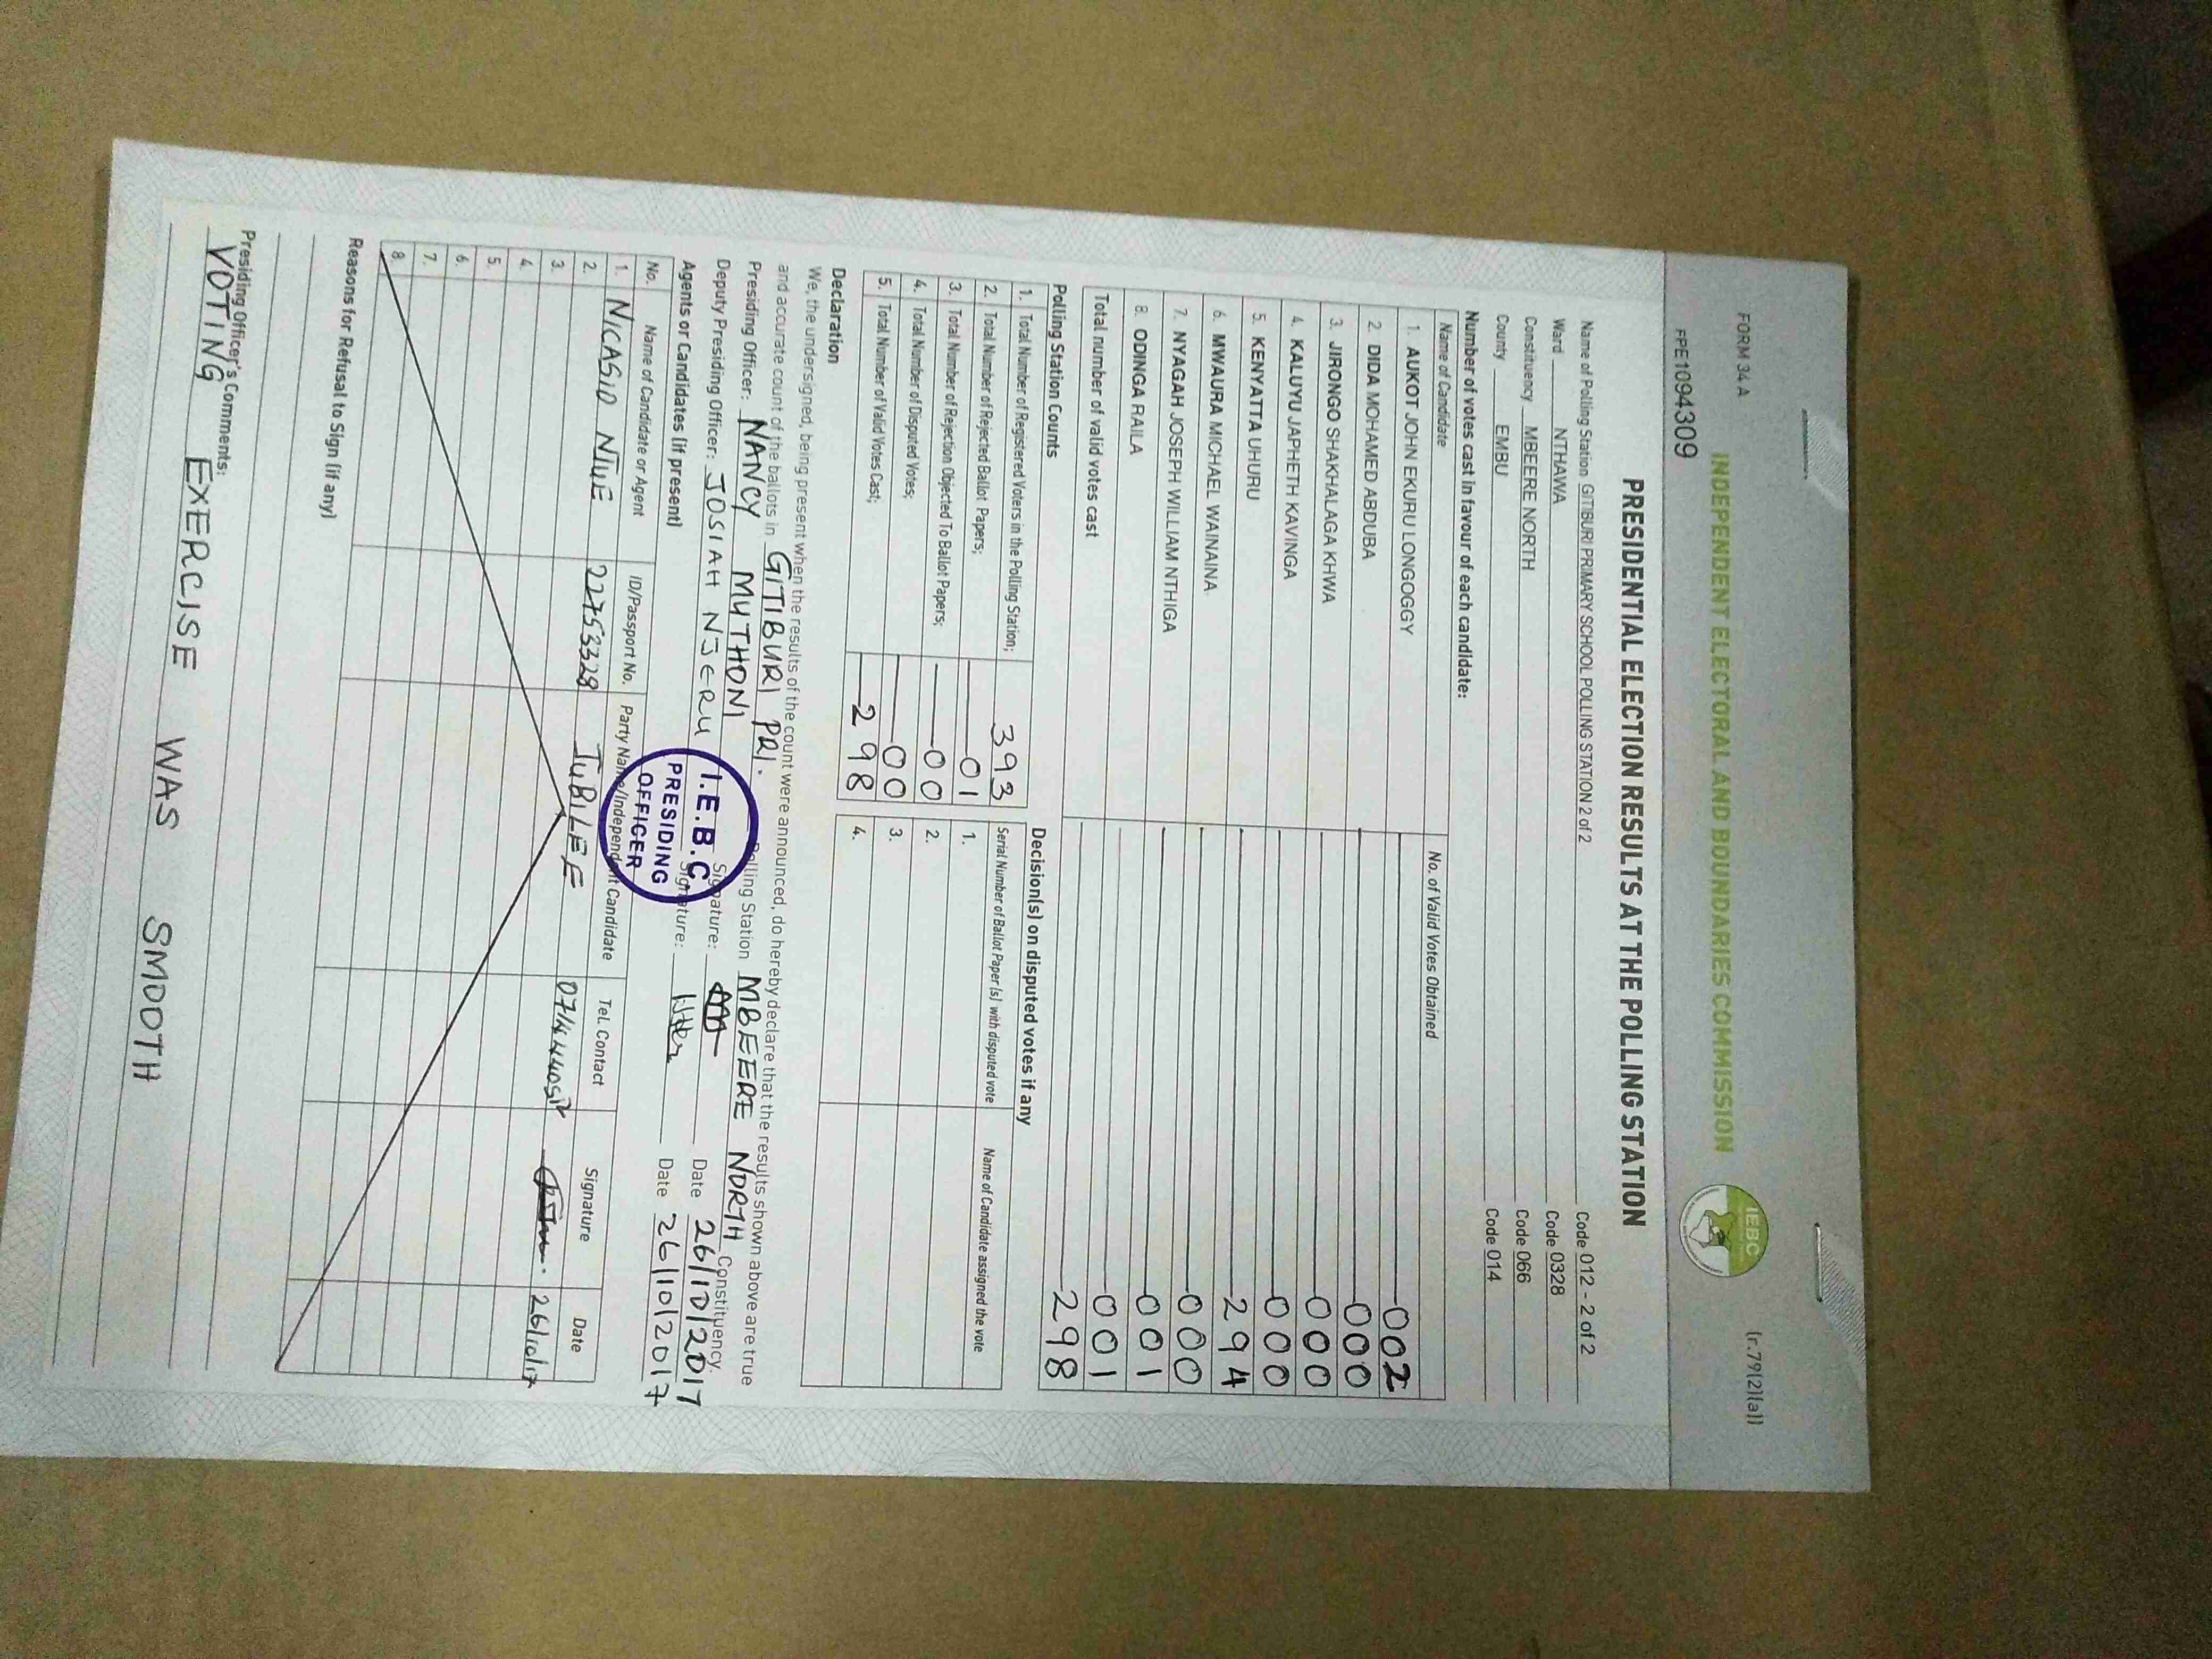 FORM 34 A
(r.79(2)(a))
INDEPENDENT ELECTORAL AND BOUNDARIES COMMISSION
IEBC
PPE1094309
PRESIDENTIAL ELECTION RESULTS AT THE POLLING STATION
Name of Polling Station GITIBURI PRIMARY SCHOOL POLLING STATION 2 of 2 Code 012 - 2 of 2
Ward NTHAWA Code 0328
Constituency MBEERE NORTH Code 066
County EMBU Code 014
Number of votes cast in favour of each candidate:
Name of Candidate No. of Valid Votes Obtained
1. AUKOT JOHN EKURU LONGOGGY 002
2. DIDA MOHAMED ABDUBA 000
3. JIRONGO SHAKHALAGA KHWA 000
4. KALUYU JAPHETH KAVINGA 000
5. KENYATTA UHURU 294
6. MWAURA MICHAEL WAINAINA 000
7. NYAGAH JOSEPH WILLIAM NTHIGA 001
8. ODINGA RAILA 001
Total number of valid votes cast 298
Polling Station Counts
1. Total Number of Registered Voters in the Polling Station; 393
2. Total Number of Rejected Ballot Papers; 01
3. Total Number of Rejection Objected To Ballot Papers; 00
4. Total Number of Disputed Votes; 00
5. Total Number of Valid Votes Cast; 298
Decision(s) on disputed votes if any
Serial Number of Ballot Paper (s) with disputed vote Name of Candidate assigned the vote
1.
2.
3.
4.
Declaration
We, the undersigned, being present when the results of the count were announced, do hereby declare that the results shown above are true
and accurate count of the ballots in GITIBURI PRI. Polling Station MBEERE NORTH Constituency.
Presiding Officer: NANCY MUTHONI Signature: Date 26/10/2017
Deputy Presiding Officer: JOSIAH NJERU Signature: Date 26/10/2017
I.E.B.C
PRESIDING
OFFICER
Agents or Candidates (if present)
No. Name of Candidate or Agent ID/Passport No. Party Name/Independent Candidate Tel. Contact Signature Date
1. NICASIO NJUE 22753328 JUBILEE 26/10/17
2.
3.
4.
5.
6.
7.
8.
Reasons for Refusal to Sign (if any)
Presiding Officer's Comments:
VOTING EXERCISE WAS SMOOTH